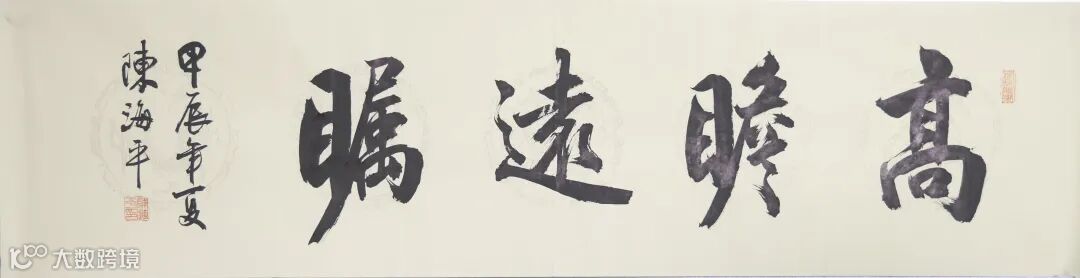 髙瞻遠矚
甲辰年夏
陳海平
大数跨境